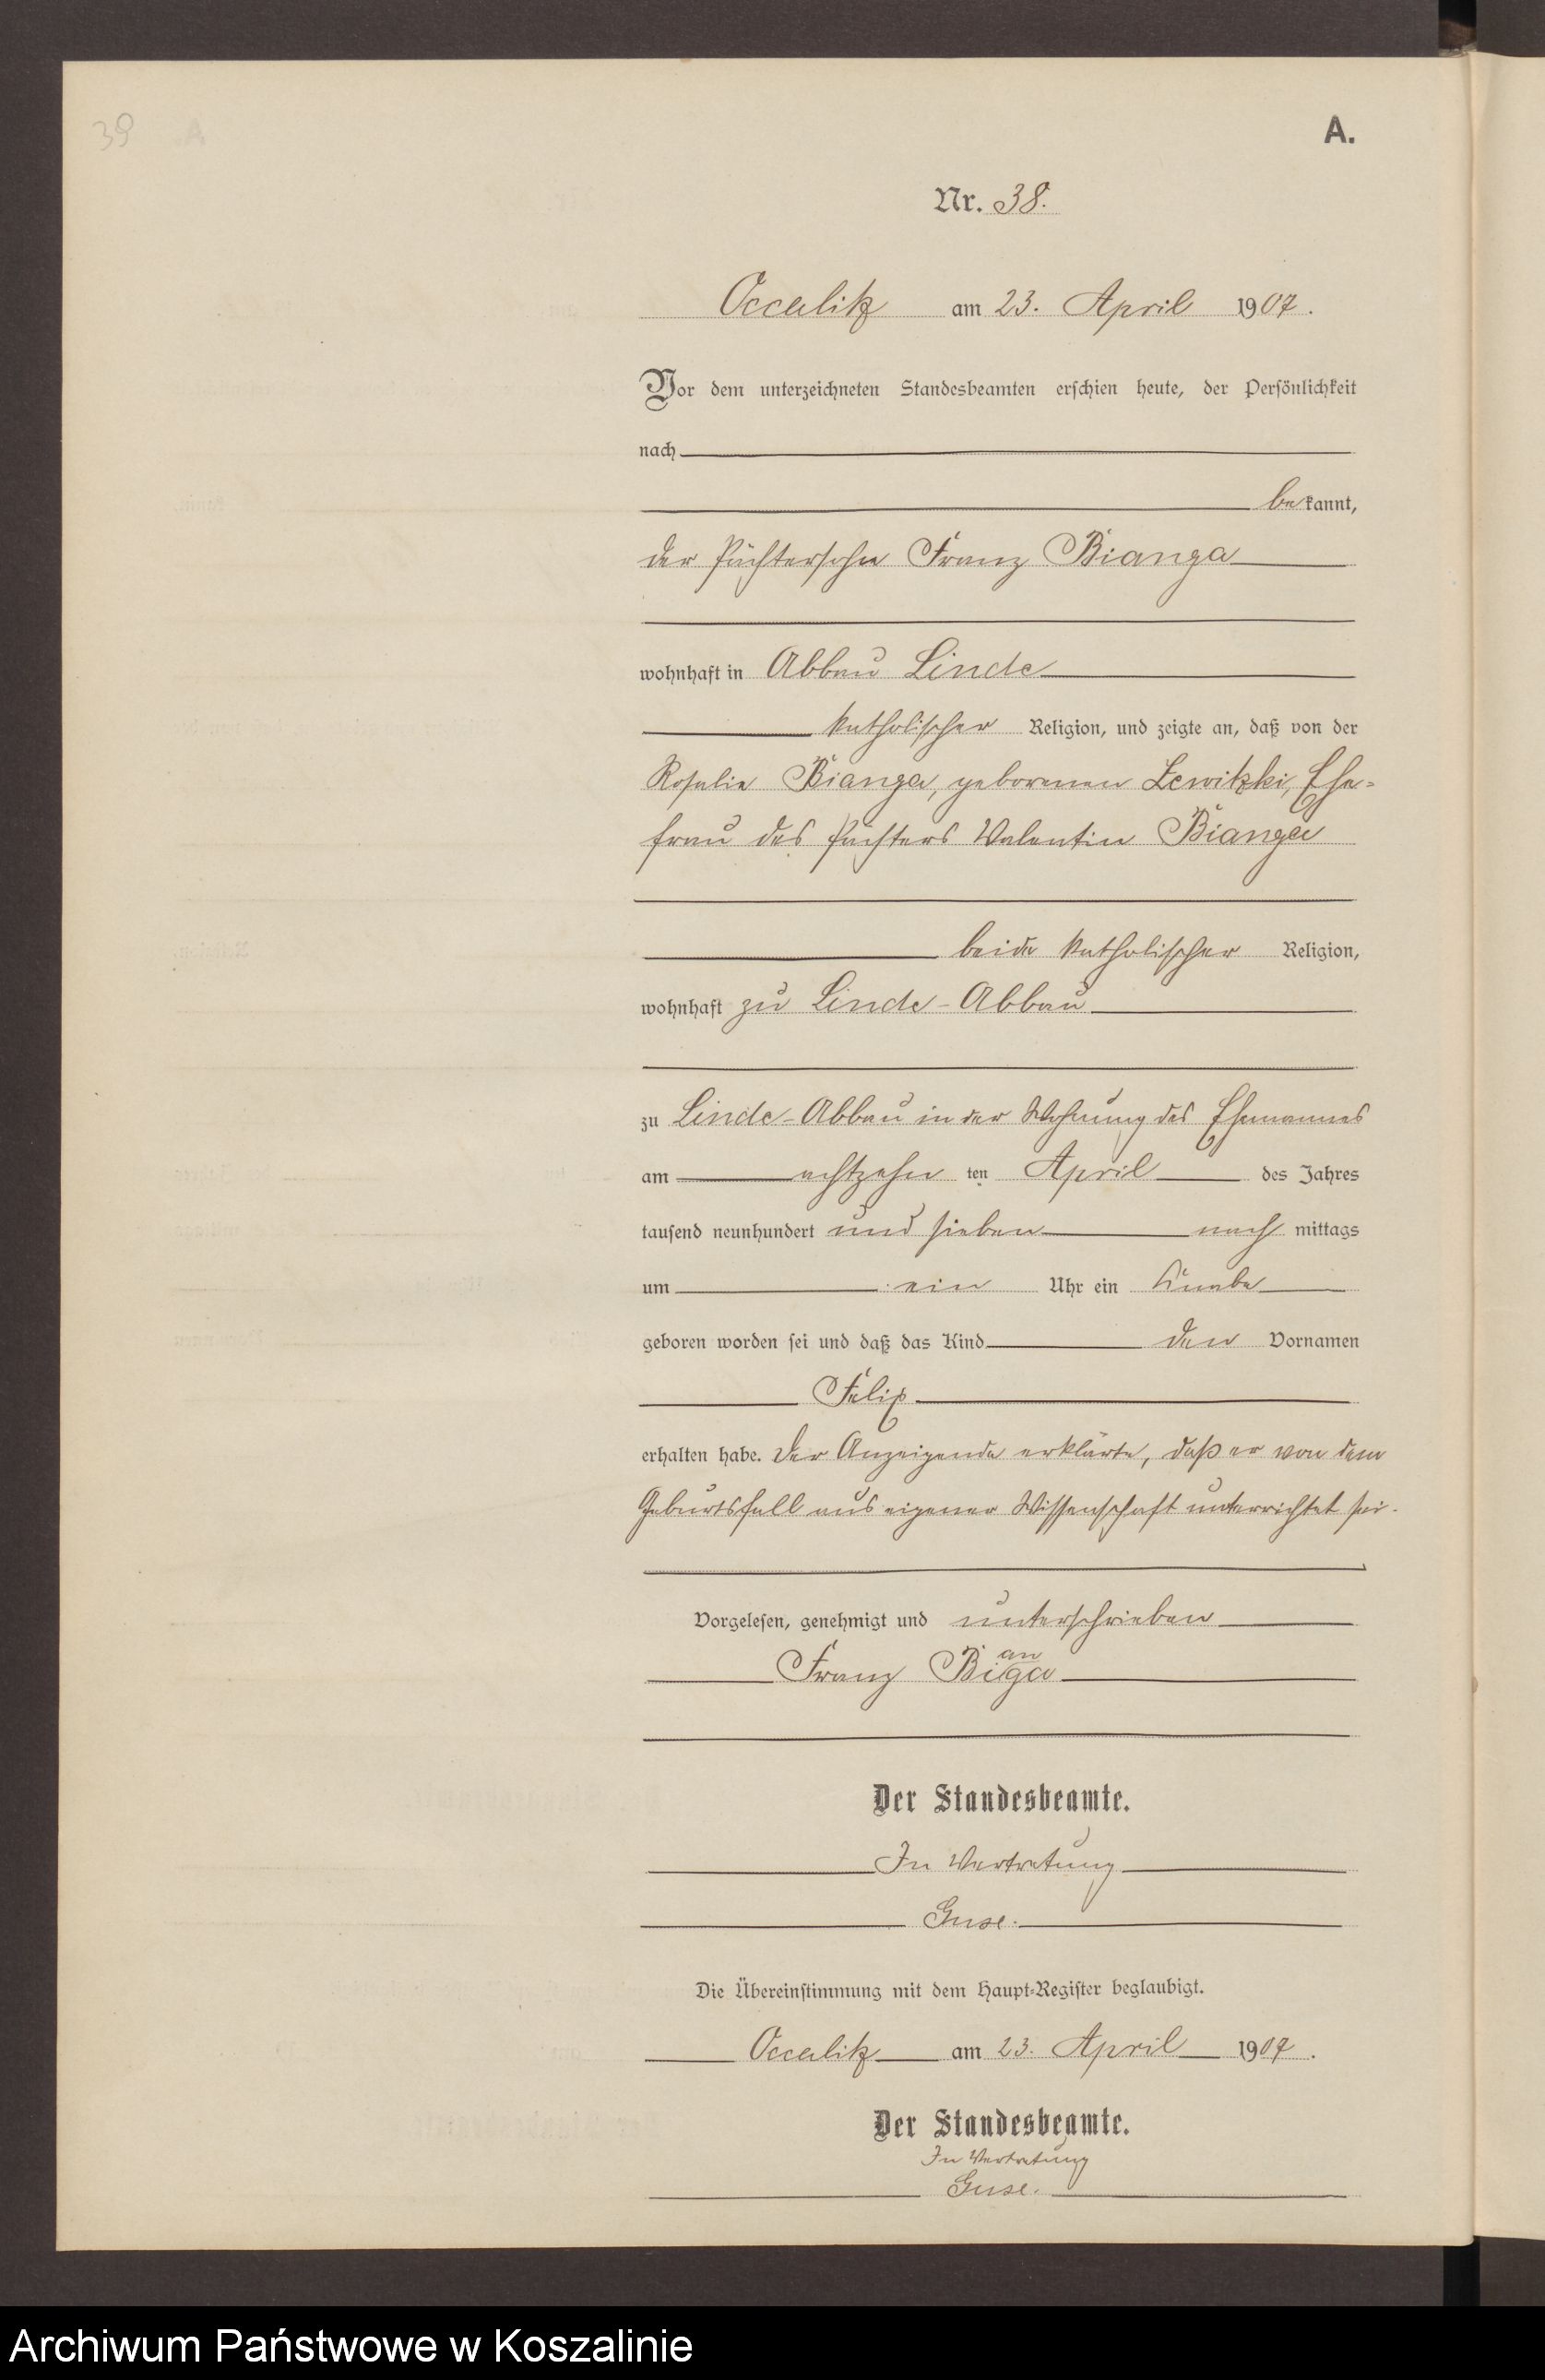 39
A.
Nr. 38.
Occalitz am 23. April 1907.
Vor dem unterzeichneten Standesbeamten erschien heute, der Persönlichkeit
nach
bekannt,
der Pächtersohn Franz Bianga
wohnhaft in Abbau Linde
katholischer Religion, und zeigte an, daß von der
Rosalie Bianga, geborenen Lewitzki, Ehe-
frau des Pächters Valentin Bianga
beide katholischer Religion,
wohnhaft zu Linde-Abbau
zu Linde-Abbau in der Wohnung des Ehemannes
am achtzehn ten April des Jahres
tausend neunhundert und sieben nach mittags
um ein Uhr ein Knabe
geboren worden sei und daß das Kind den Vornamen
Felix
erhalten habe. Der Anzeigende erklärte, daß er von dem
Geburtsfall aus eigener Wissenschaft unterrichtet sei.
Vorgelesen, genehmigt und unterschrieben
Franz Bianga
Der Standesbeamte.
In Vertretung
Guse.
Die Übereinstimmung mit dem Haupt-Register beglaubigt.
Occalitz am 23. April 1907.
Der Standesbeamte.
In Vertretung
Guse.
Archiwum Państwowe w Koszalinie